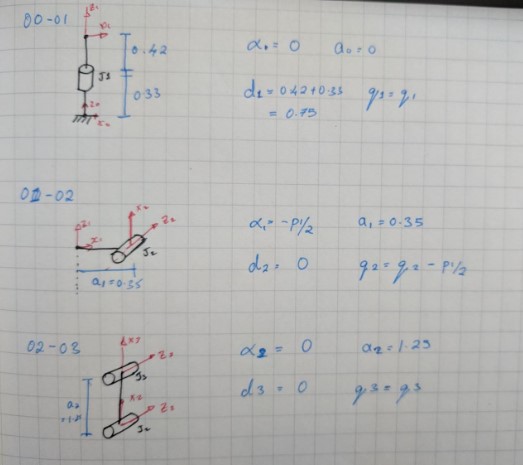 00-01
Z1
X1
0.42
J1
0.33
Z0
X0
α0 = 0    a0 = 0
d1 = 0.42+0.33    q1 = q1
= 0.75
01-02
Z1
X1
X2
Z2
J2
a1 = 0.35
α1 = -pi/2    a1 = 0.35
d2 = 0    q2 = q2 - pi/2
02-03
X3
Z3
J3
a2
X2
J2
α2 = 0    a2 = 1.25
d3 = 0    q3 = q3